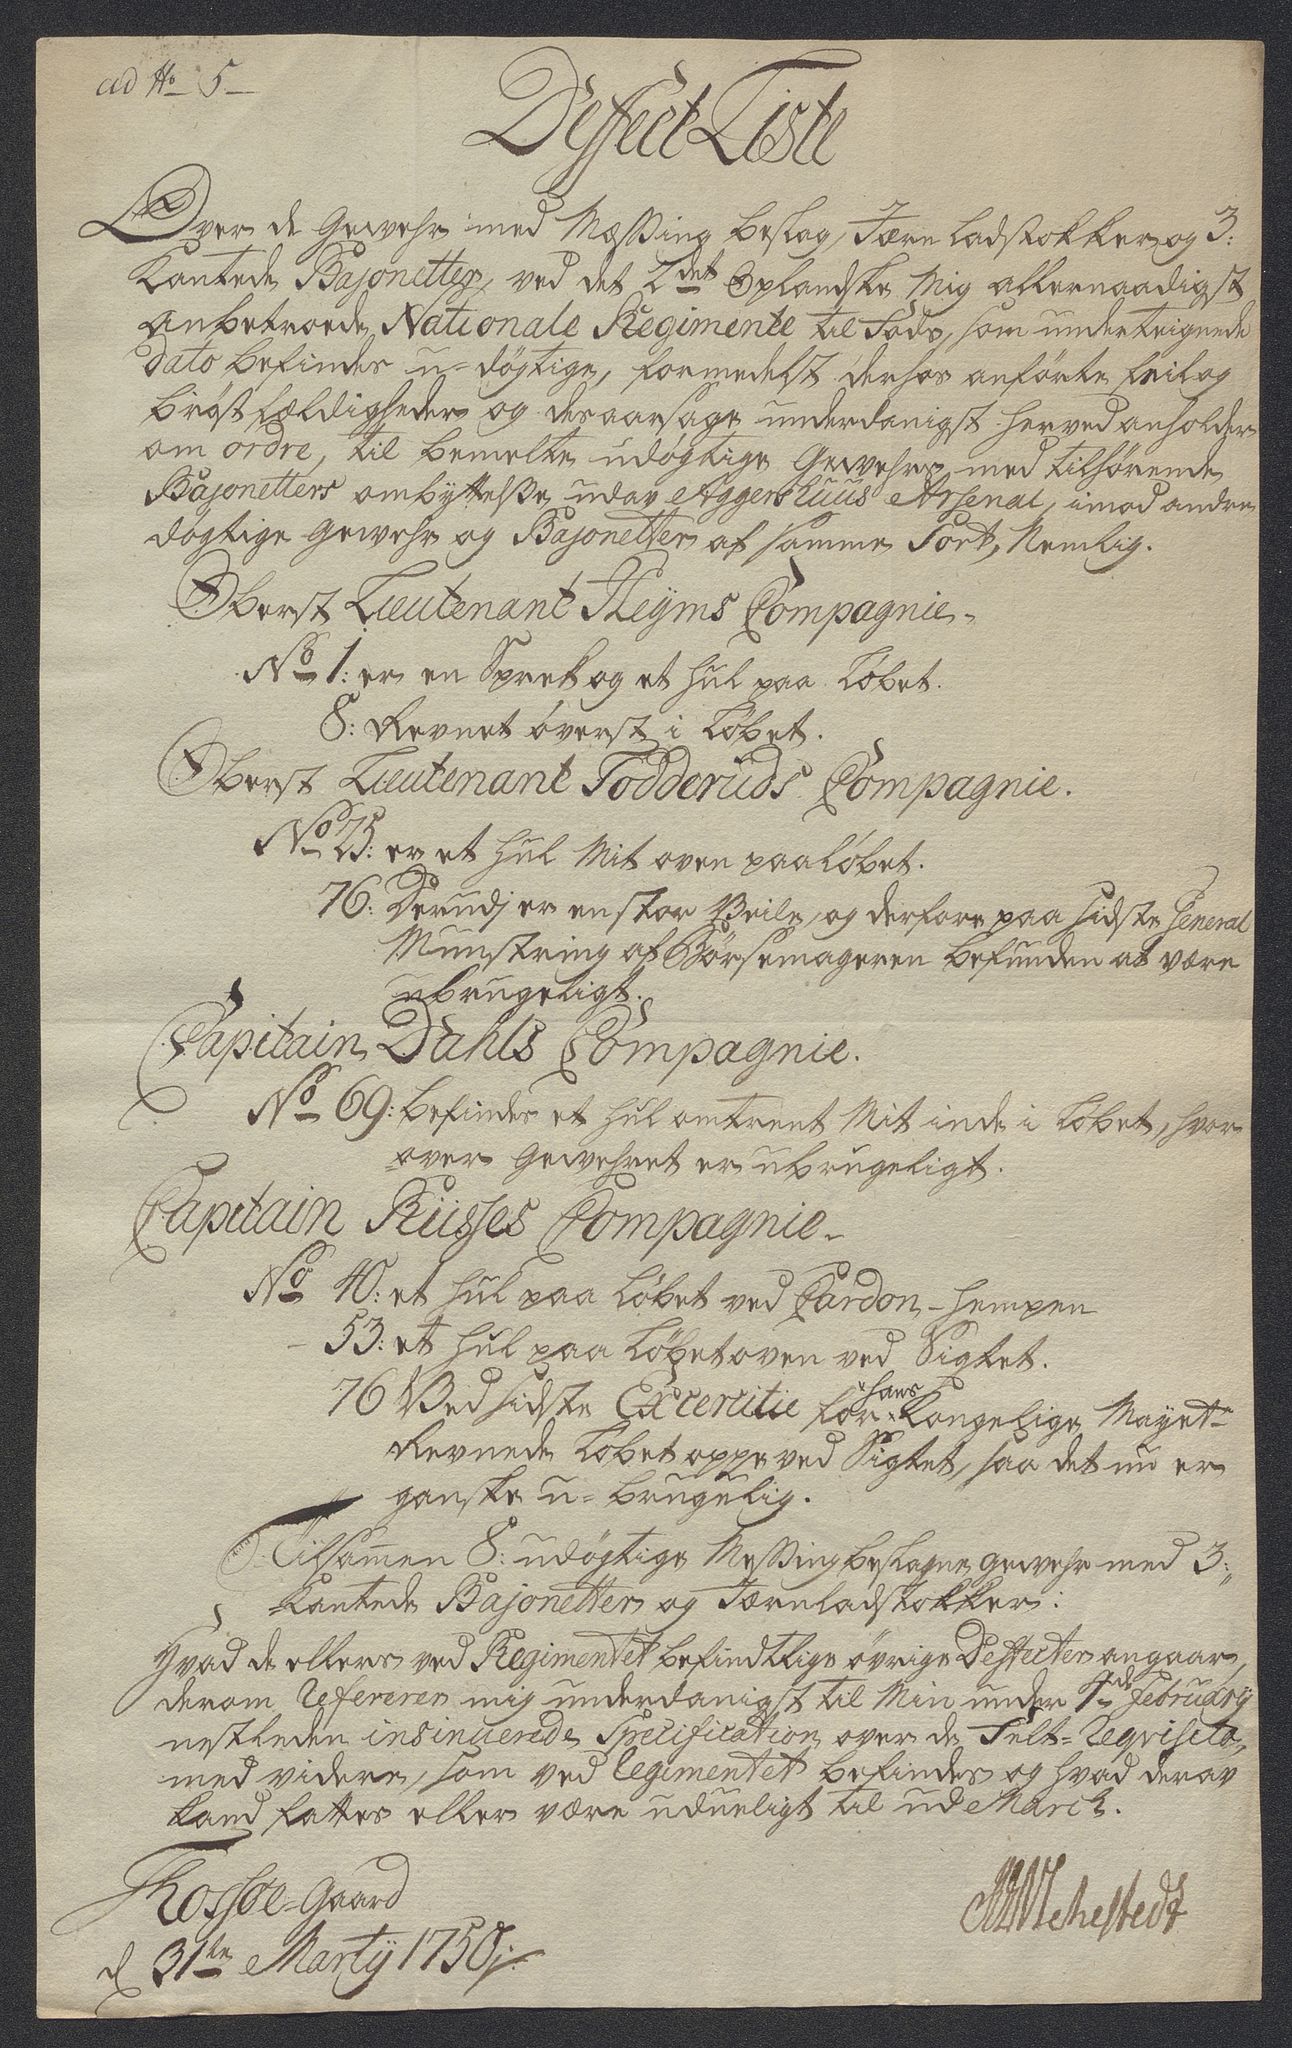 ad No 5
Deffect Liste
Over de Gewehr med Mæssing beslag, Jærn ladstokker og 3:
kantede Bajonetter, ved det 2det Oplandske Mig allernaadigst
anbetroede Nationale Regimente til Fods, som undertegnede
dato befindes u-dögtige, formedelst derhos anførte feil og
bröstfældigheder og desaarsage underdanigst herved anholder
om ordre, til bemelte udögtige Gewehrs med tilhörende
Bajonetters ombyttelse udav Aggershuus Arsenal, imod andre
dögtige Gewehr og Bajonetter af samme Sort, Nemlig.
Oberst Lieutenant Heyms Compagnie.
No 1: er en Sprek og et hul paa Löbet.
8: Revnet överst i Löbet.
Oberst Lieutenant Todderuds Compagnie.
No 25: er et hul Mit oven paa löbet.
76: Derudj er en stor Beile, og derfore paa sidste General
Munstring af Börsemageren befunden at være
ubrugeligt.
Capitain Dahls Compagnie.
No 69: befindes et hul omtrent Mit inde i Löbet, hvor
over Gewehret er ubrugeligt.
Capitain Rüsses Compagnie.
No 40: et hul paa Löbet ved Cardon-hempen
- 53: et hul paa Löbet oven ved Sigtet.
76 Ved sidste Excercitie for hans Kongelige Mayet
Revnede Löbet oppe ved Sigtet, saa det nu er
ganske u-brugelig.
Tilsamen 8: udögtige Messingbeslagne Gewehr med 3:
kantede Bajonetter og Jærnladstokker:
Hvad de ellers ved Regimentet befindtlige övrige Deffecter angaar,
derom Refererer mig underdanigst til Min under 7de February
nestleden insinuerede Specification over de Felt-Reqvisita,
med videre, som ved Regimentet befindes og hvad derav
kand fattes eller være udueligt til ud March.
Thossöe-Gaard
d 31te Martij 1750
Sehestedt